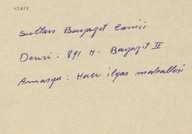 Sultan Bayazit Camii
Devri : 891 H. Bayazit II
Amasya : Hacı ilyas mahallesi